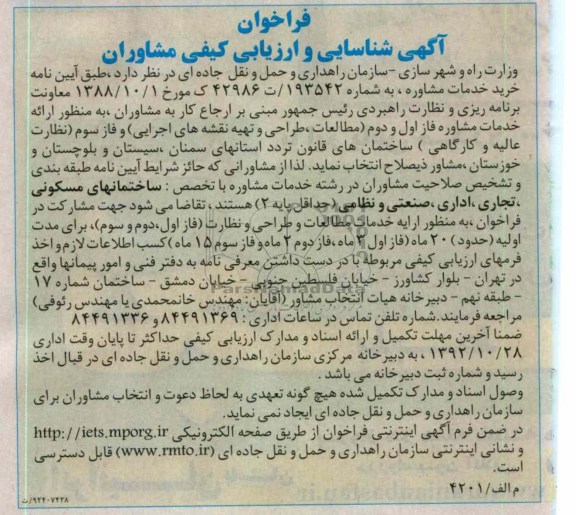 فراخوان
آگهی شناسایی و ارزیابی کیفی مشاوران
وزارت راه و شهر سازی -سازمان راهداری و حمل و نقل جاده ای در نظر دارد ،طبق آیین نامه
خرید خدمات مشاوره ، به شماره ۱۹۳۵۴۲/ت ۴۲۹۸۶ ک مورخ ۱۳۸۸/۱۰/۱ معاونت
برنامه ریزی و نظارت راهبردی رئیس جمهور مبنی بر ارجاع کار به مشاوران ،به منظور ارائه
خدمات مشاوره فاز اول و دوم (مطالعات ،طراحی و تهیه نقشه های اجرایی) و فاز سوم (نظارت
عالیه و کارگاهی ) ساختمان های قانون تردد استانهای سمنان ،سیستان و بلوچستان و
خوزستان ،مشاور ذیصلاح انتخاب نماید. لذا از مشاورانی که حائز شرایط آیین نامه طبقه بندی
و تشخیص صلاحیت مشاوران در رشته خدمات مشاوره با تخصص : ساختمانهای مسکونی
،تجاری ،اداری ،صنعتی و نظامی (حداقل پایه ۲) هستند ، تقاضا می شود جهت مشارکت در
فراخوان ،به منظور ارایه خدمات مطالعات و طراحی و نظارت (فاز اول،دوم و سوم)، برای مدت
اولیه (حدود) ۲۰ ماه (فاز اول ۳ ماه ،فاز دوم ۲ ماه و فاز سوم ۱۵ ماه ) کسب اطلاعات لازم و اخذ
فرمهای ارزیابی کیفی مربوطه با در دست داشتن معرفی نامه به دفتر فنی و امور پیمانها واقع
در تهران - بلوار کشاورز - خیابان فلسطین جنوبی - خیابان دمشق - ساختمان شماره ۱۷
- طبقه نهم - دبیرخانه هیات انتخاب مشاور (آقایان: مهندس خانمحمدی یا مهندس رئوفی)
مراجعه فرمایند.شماره تلفن تماس در ساعات اداری : ۸۴۴۹۱۳۶۹ و ۸۴۴۹۱۳۳۶
ضمنا آخرین مهلت تکمیل و ارائه اسناد و مدارک ارزیابی کیفی حداکثر تا پایان وقت اداری
۱۳۹۲/۱۰/۲۸ ، به دبیرخانه مرکزی سازمان راهداری و حمل و نقل جاده ای در قبال اخذ
رسید و شماره ثبت دبیرخانه می باشد .
وصول اسناد و مدارک تکمیل شده هیچ گونه تعهدی به لحاظ دعوت و انتخاب مشاوران برای
سازمان راهداری و حمل و نقل جاده ای ایجاد نمی نماید.
در ضمن فرم آگهی اینترنتی فراخوان از طریق صفحه الکترونیکی http://iets.mporg.ir
و نشانی اینترنتی سازمان راهداری و حمل و نقل جاده ای (www.rmto.ir) قابل دسترسی
است.
م الف/۴۲۰۱
۹۲۲۰۷۲۲۸/ت